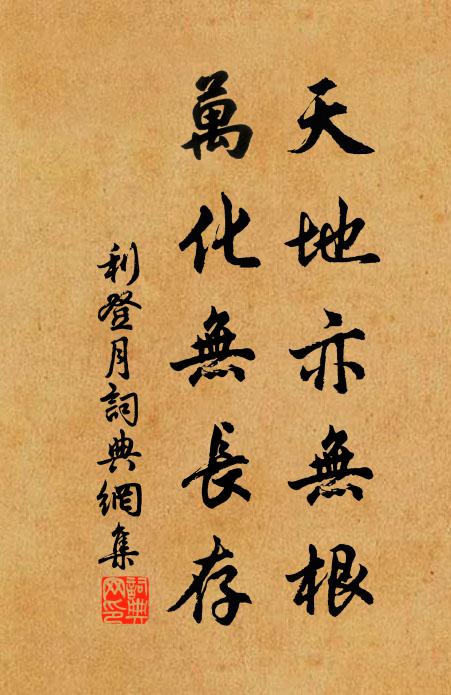 天地亦無根
萬化無長存
利登月詞典網集
詞典網印